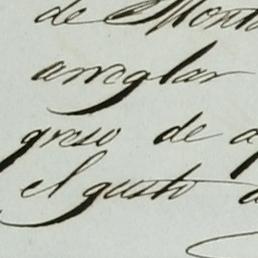 de Mont
arreglar
greso de a
el gusto a